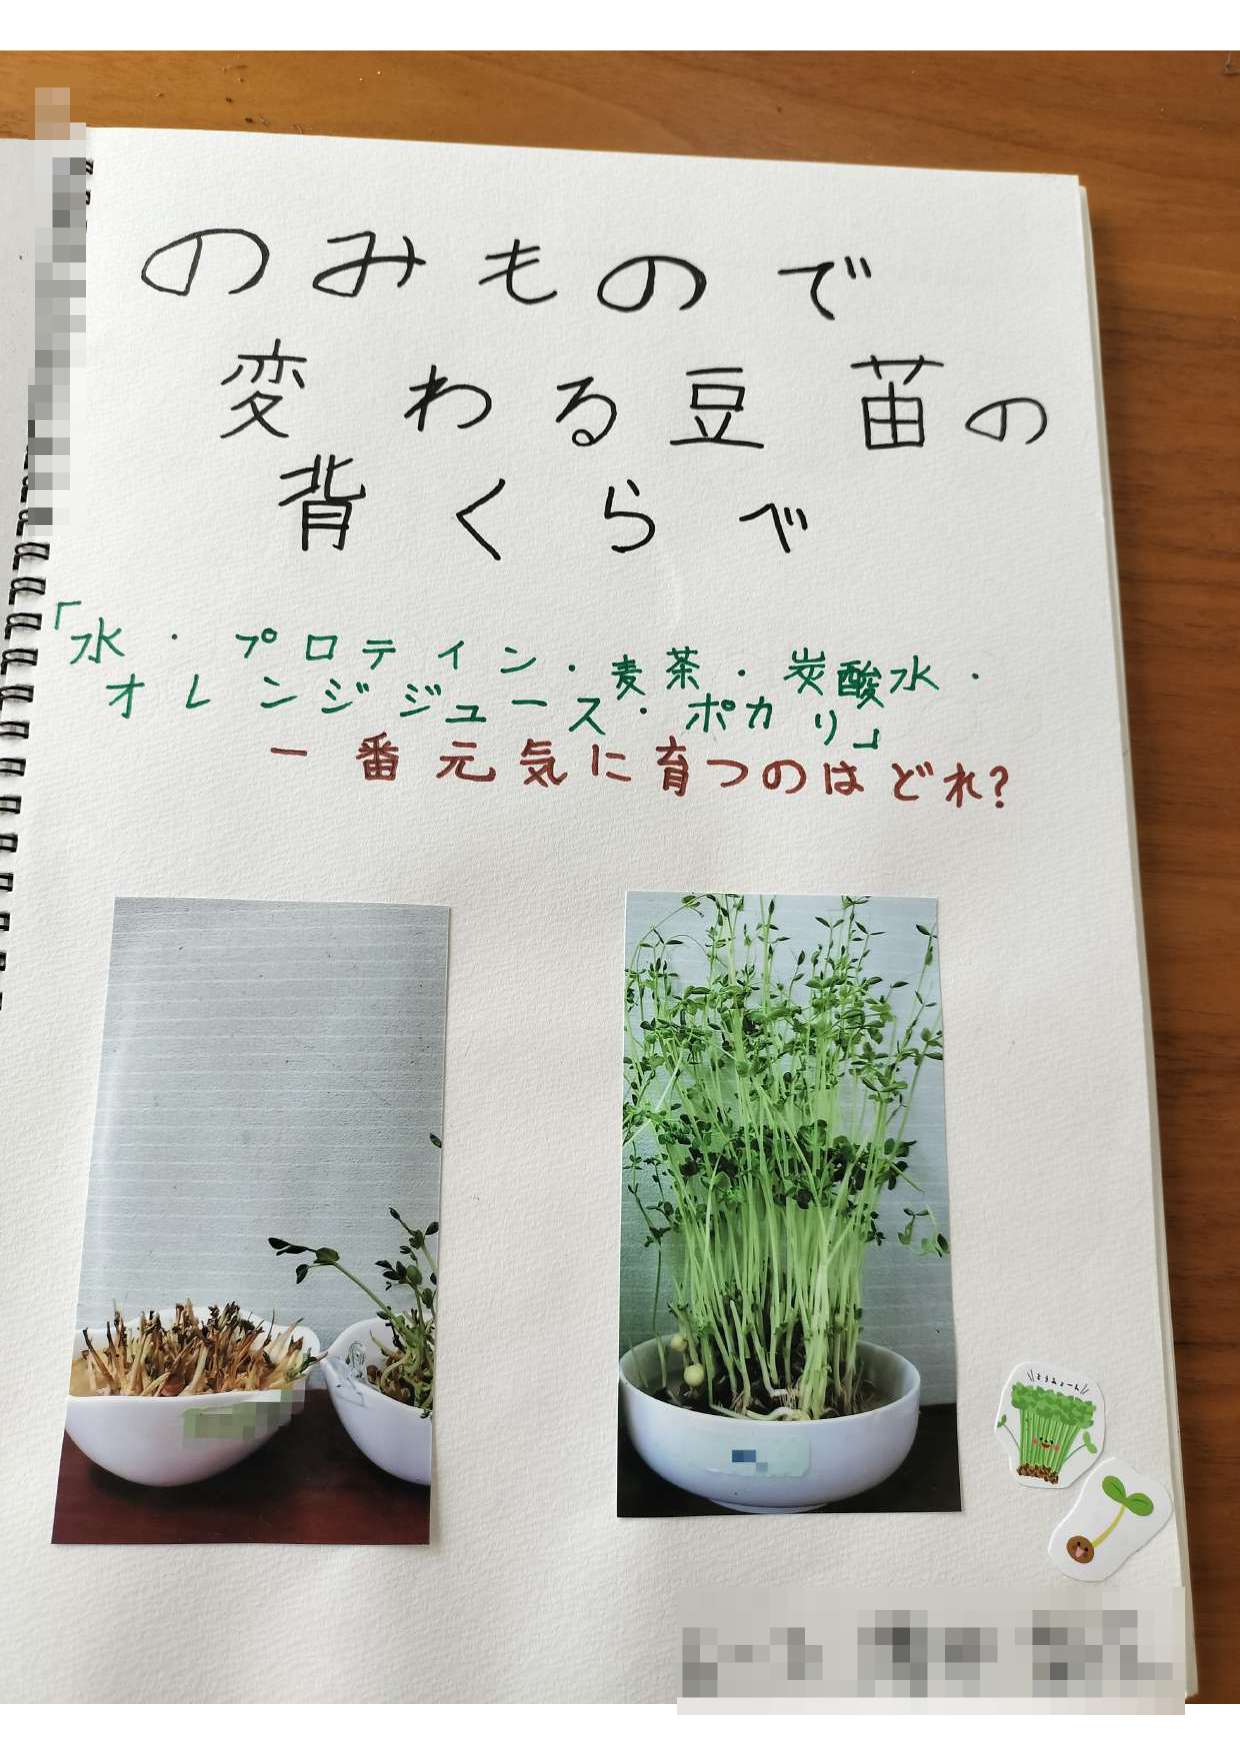 のみもので
変わる豆苗の
背くらべ
「水・プロテイン・麦茶・炭酸水・
オレンジジュース・ポカリ」
一番元気に育つのはどれ?
とうみょーん